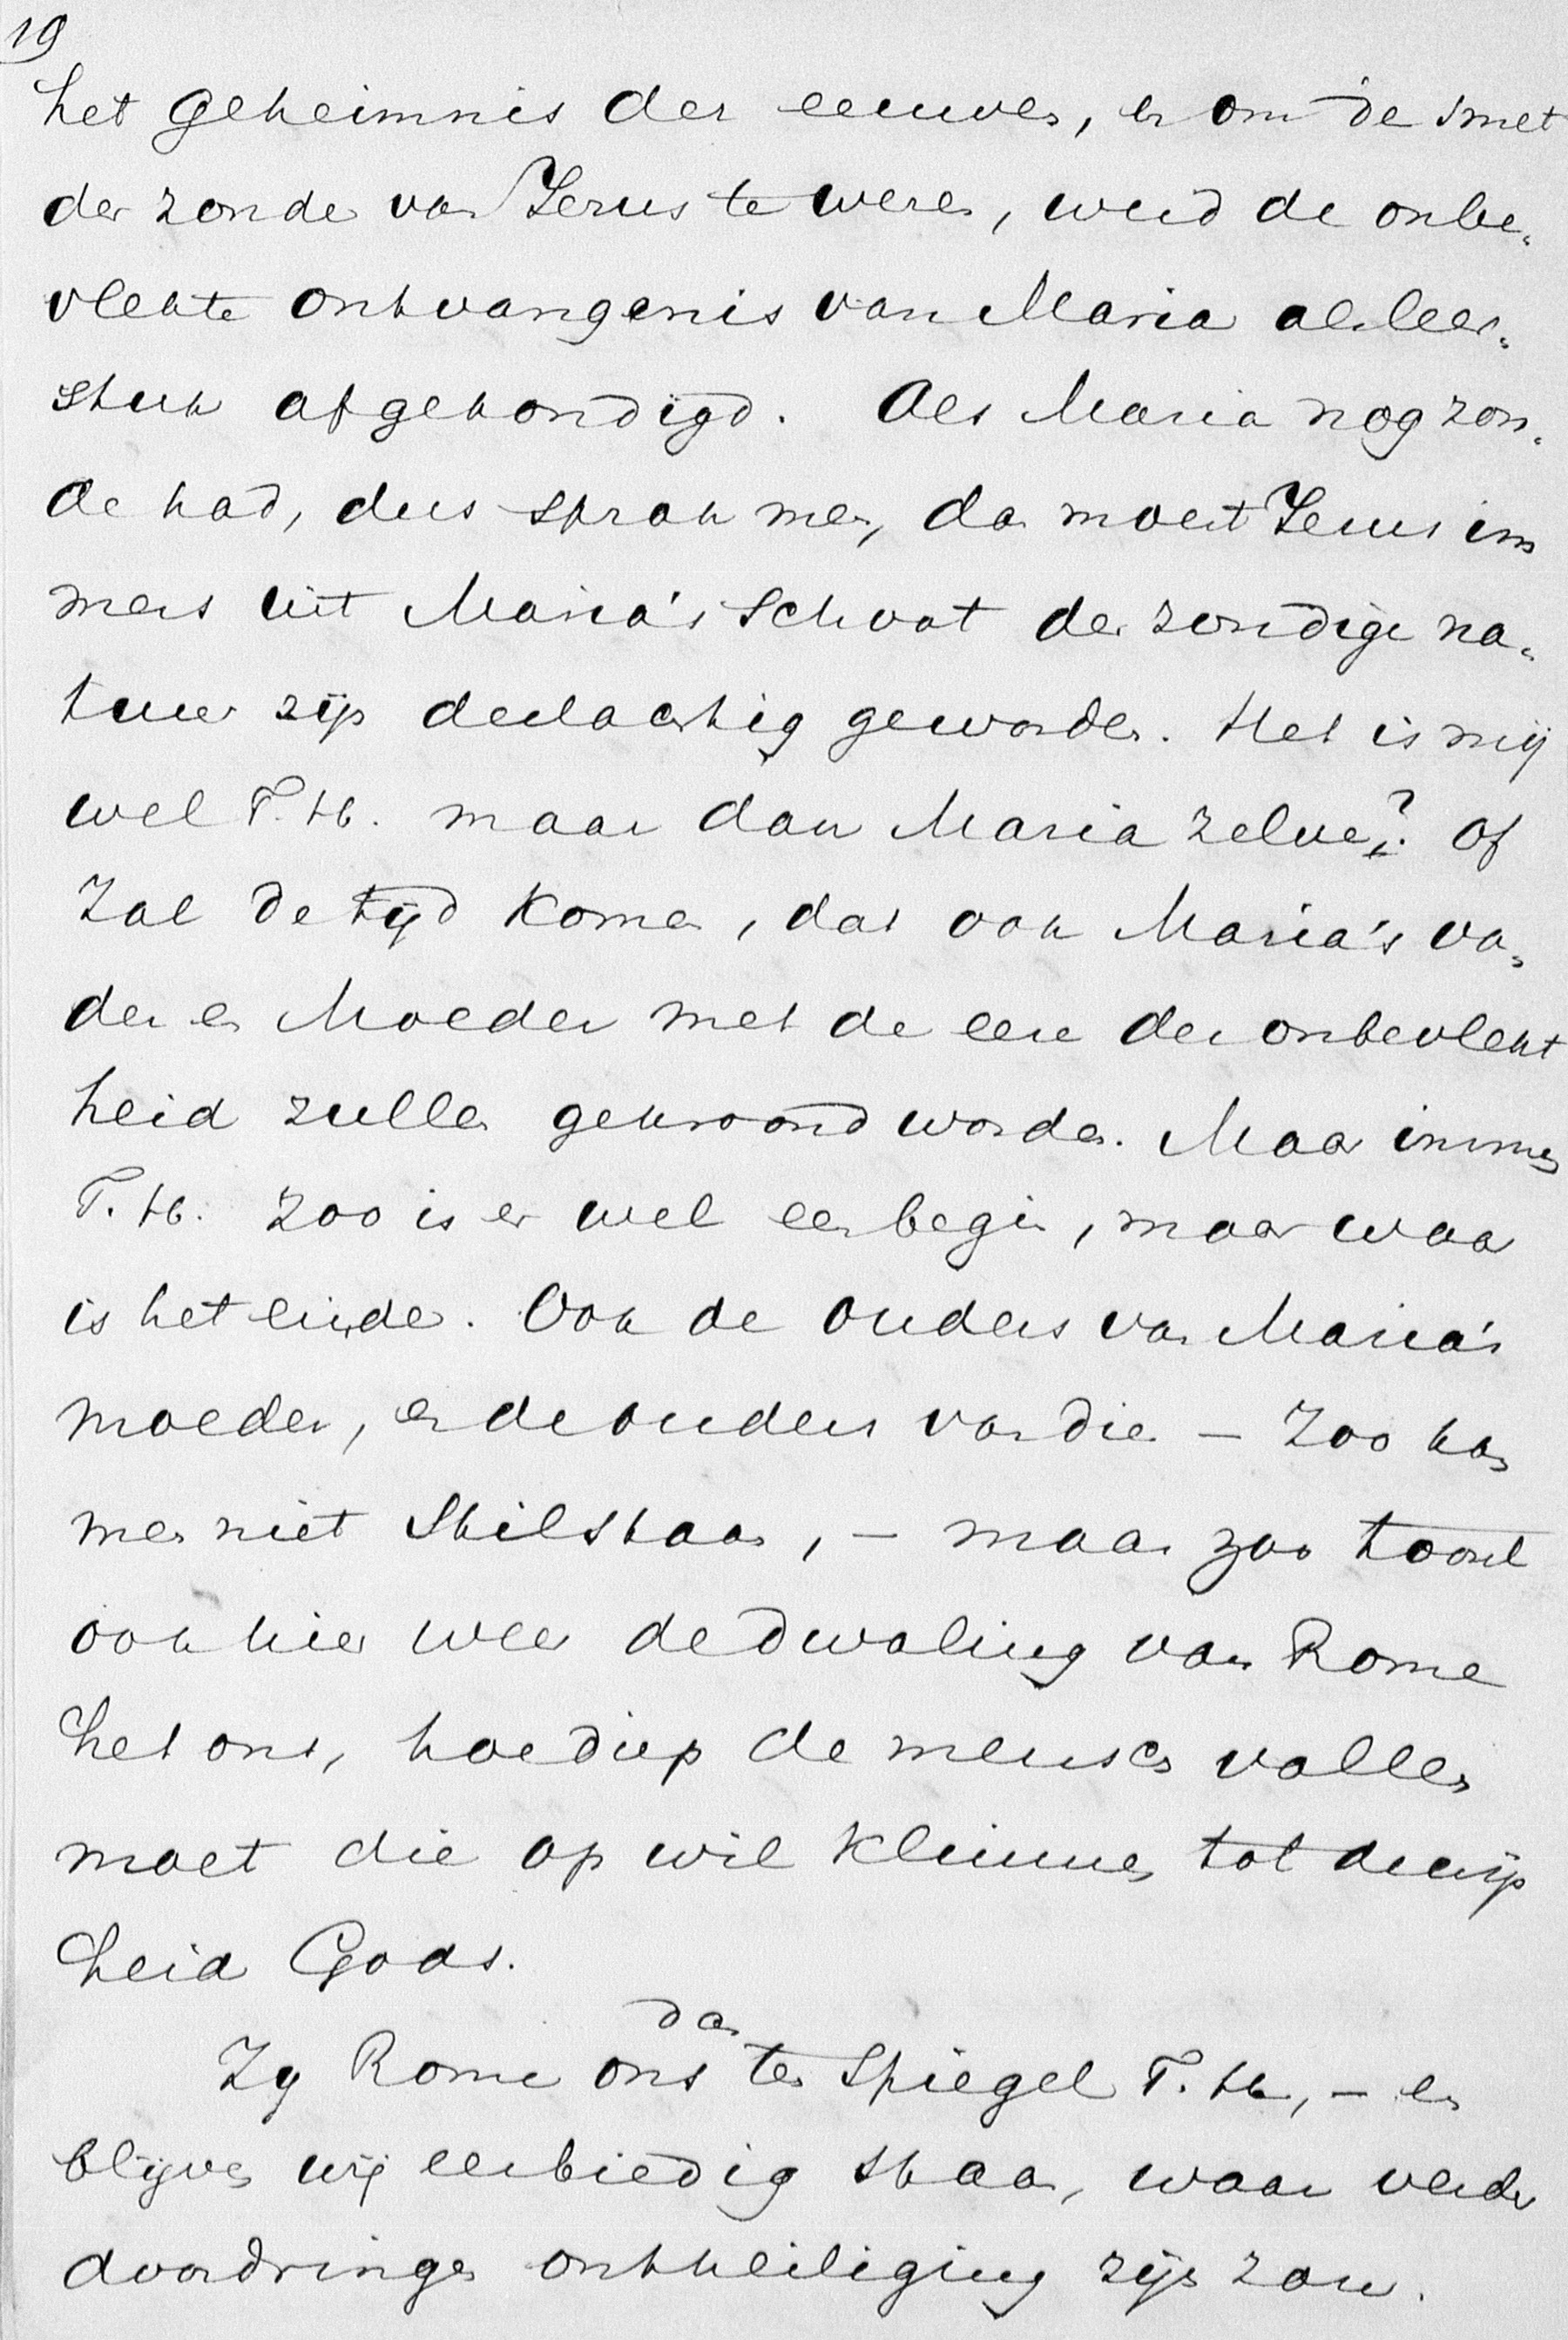 19
het geheimnis der eeuwen, en om de smet
der zonde van Jezus te weren, werd de onbe-
vlekte ontvangenis van Maria als leer-
stuk afgekondigd. Als Maria nog zon-
de had, dus sprak men, dan moest Jezus im
mers uit Maria's schoot der zondige na-
tuur zijn deelachtig geworden. Het is mij
wel T. H. maar dan Maria zelve? of
zal de tijd komen, dat ook Maria's va-
der en Moeder met de eere der onbevlekt
heid zullen gekroond worden. Maar immers
T. H. zoo is er wel een begin, maar waar
is het einde. Ook de ouders van Maria's
moeder, en de ouders van die – zoo kan
men niet stilstaan, – maar zoo toont
ook hier weer de dwaling van Rome
het ons, hoe diep de mensch vallen
moet die op wil klimmen tot de wijs
heid Gods.
dan
Zij Rome ons ten spiegel T. H., – en
blijven wij eerbiedig staan, waar verder
doordringen ontheiliging zijn zou.